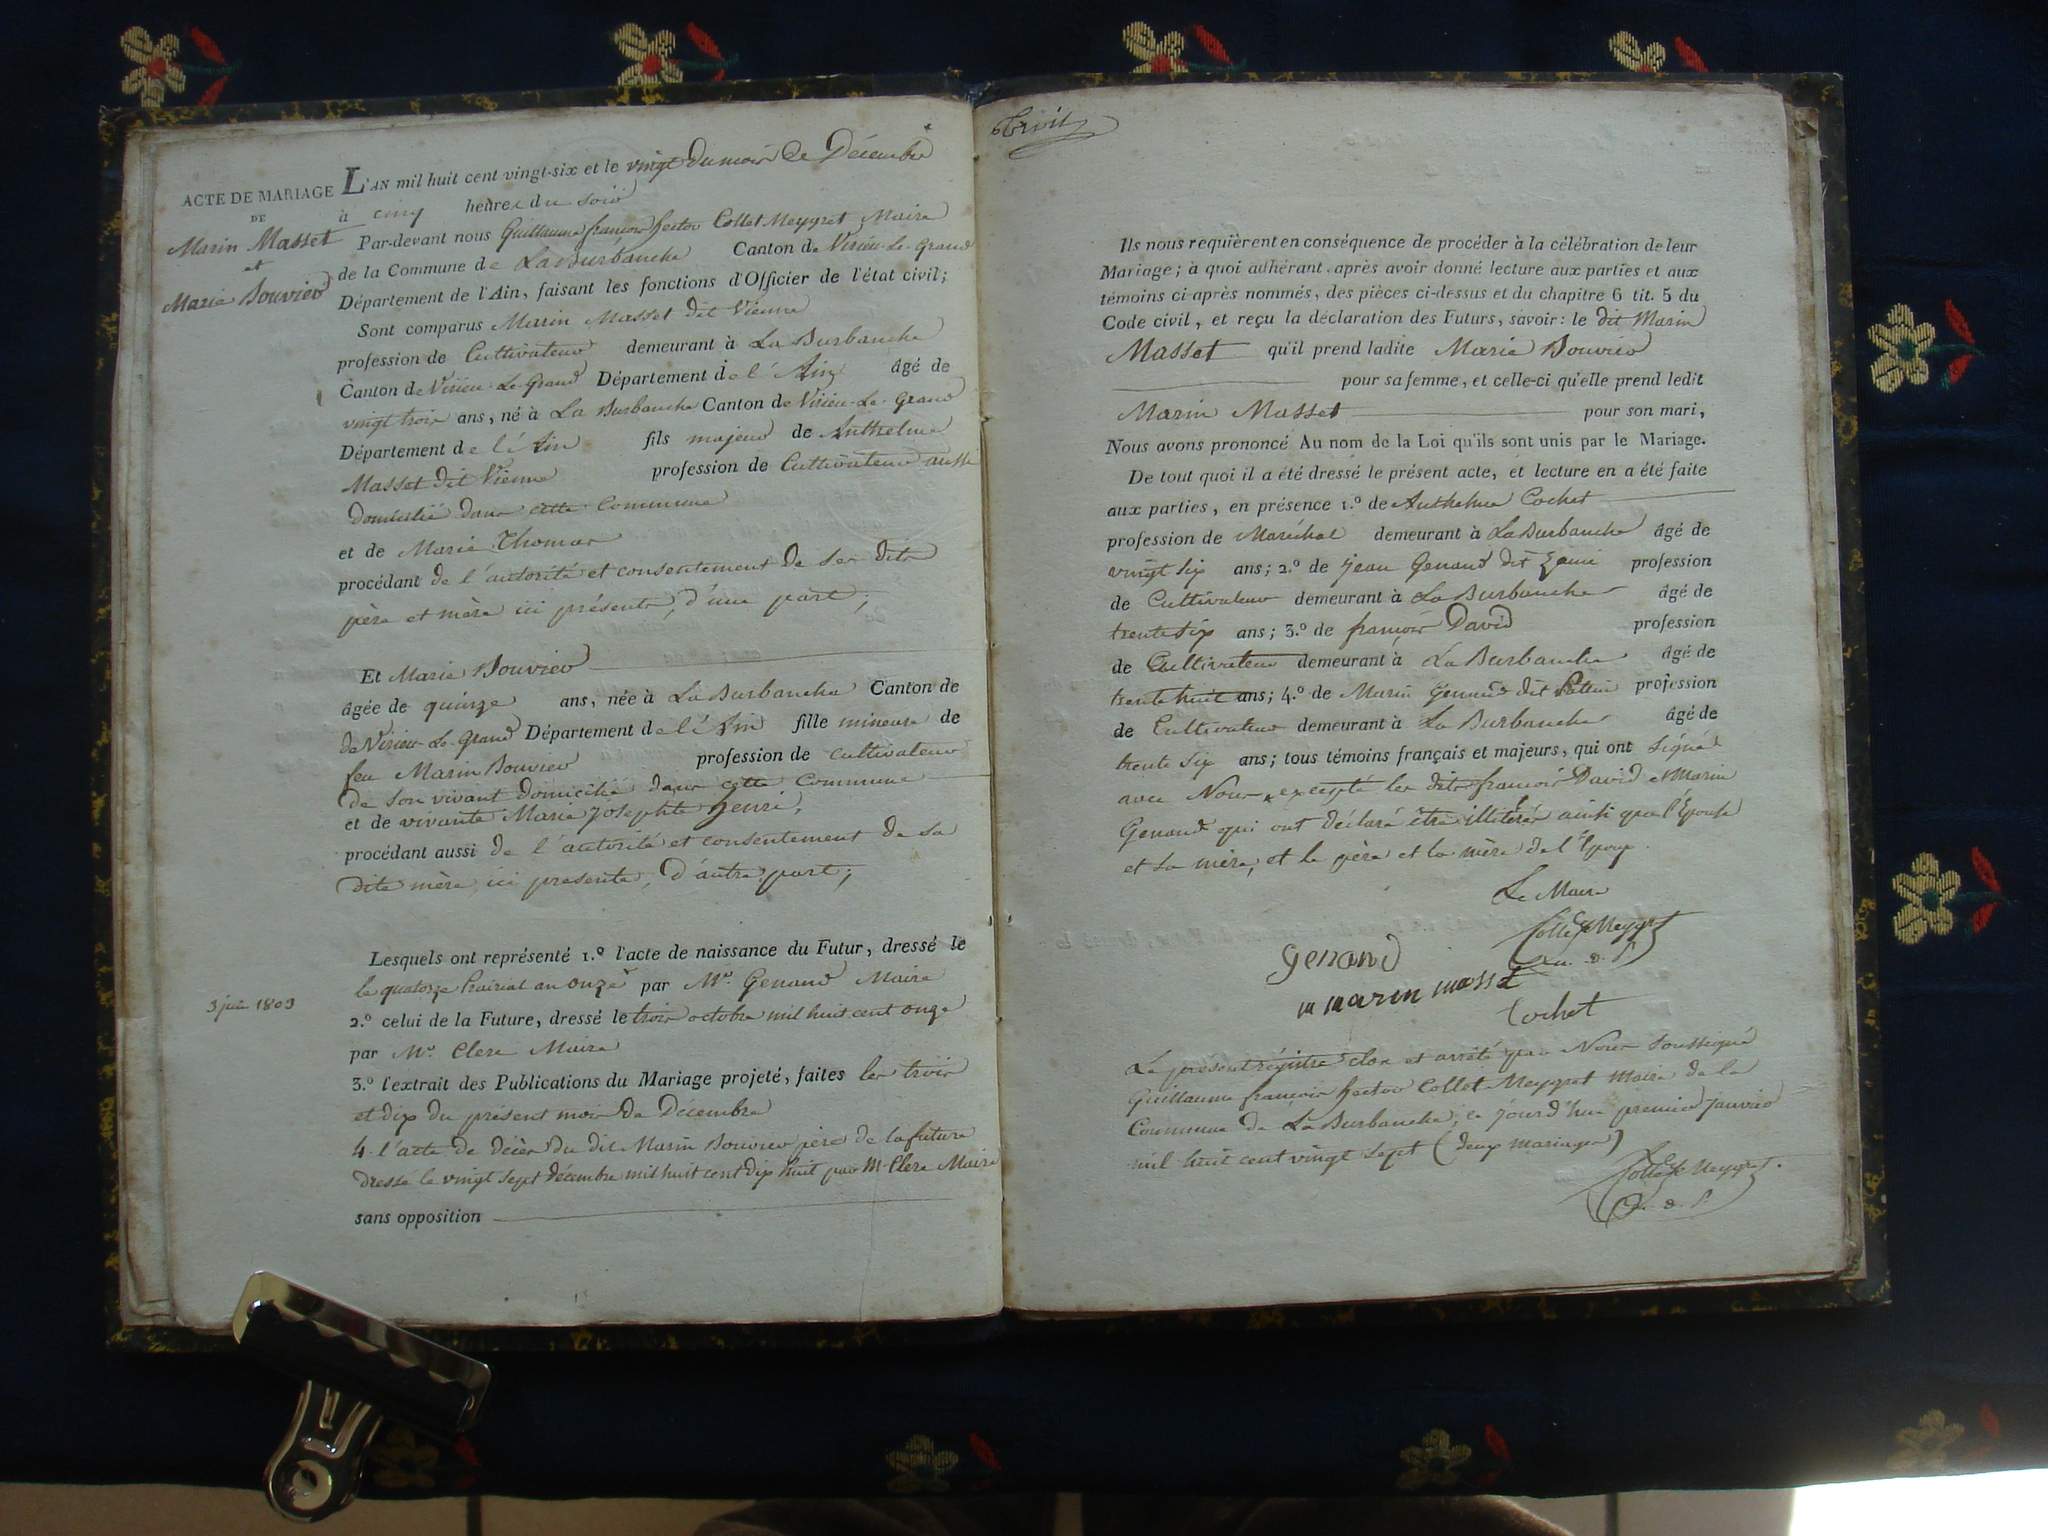 ACTE DE MARIAGE
DE
Marin Masset
et
Marie Bouvier
L'AN mil huit cent vingt-six et le vingt du mois de Décembre
à cinq heures du soir
Par-devant nous Guillaume françois hector Collet Meygret Maire
de la Commune de La Burbanche Canton de Virieu-Le-Grand
Département de l'Ain, faisant les fonctions d'Officier de l'état civil;
Sont comparus Marin Masset dit Vienne
profession de Cultivateur demeurant à La Burbanche
Canton de Virieu-Le-Grand Département de l'Ain âgé de
vingt trois ans, né à La Burbanche Canton de Virieu-Le-Grand
Département de l'Ain fils majeur de Anthelme
Masset dit Vienne profession de Cultivateur aussi
domicilié dans cette Commune
et de Marie Thomas
procédant de l'autorité et consentement de ses dits
père et mère ici présents, d'une part;
Et Marie Bouvier
âgée de quinze ans, née à La Burbanche Canton de
de Virieu-Le-Grand Département de l'Ain fille mineure de
feu Marin Bouvier profession de cultivateur
de son vivant domicilié dans cette Commune
et de vivante Marie Josephte henri,
procédant aussi de l'autorité et consentement de sa
dite mère, ici presente, d'autre part;
Lesquels ont représenté 1.º l'acte de naissance du Futur, dressé le
3 juin 1803
le quatorze Prairial an onze par Mr. Genand Maire
2.º celui de la Future, dressé le trois octobre mil huit cent onze
par Mr. Clerc Maire
3.º l'extrait des Publications du Mariage projeté, faites les trois
et dix du présent mois de Décembre
4. l'acte de décès du dit Marin Bouvier père de la future
dressé le vingt sept décembre mil huit cent dix huit par Mr Clerc Maire
sans opposition
Ils nous requièrent en conséquence de procéder à la célébration de leur
Mariage; à quoi adhérant, après avoir donné lecture aux parties et aux
témoins ci-après nommés, des pièces ci-dessus et du chapitre 6 tit. 5 du
Code civil, et reçu la déclaration des Futurs, savoir: le dit Marin
Masset qu'il prend ladite Marie Bouvier
pour sa femme, et celle-ci qu'elle prend ledit
Marin Masset pour son mari,
Nous avons prononcé Au nom de la Loi qu'ils sont unis par le Mariage.
De tout quoi il a été dressé le présent acte, et lecture en a été faite
aux parties, en présence 1.º de Anthelme Cochet
profession de Maréchal demeurant à La Burbanche âgé de
vingt six ans; 2.º de Jean Genand dit profession
de Cultivateur demeurant à La Burbanche âgé de
trente six ans; 3.º de françois David profession
de Cultivateur demeurant à La Burbanche âgé de
trente huit ans; 4.º de Marin Genand dit profession
de Cultivateur demeurant à La Burbanche âgé de
trente six ans; tous témoins français et majeurs, qui ont signé
avec Nous excepté les dits françois David et Marin
Genand qui ont déclaré être illitérés ainsi que l'Epouse
et sa mère, et le père et la mère de l'Epoux.
Le Maire
Collet Meygret
Genand
m marin masset
Cochet
Le présent régistre clos et arrêté par Nous soussigné
Guillaume françois hector Collet Meygret Maire de la
Commune de La Burbanche, ce jourd'hui premier janvier
mil huit cent vingt sept (deux mariages)
Collet Meygret.